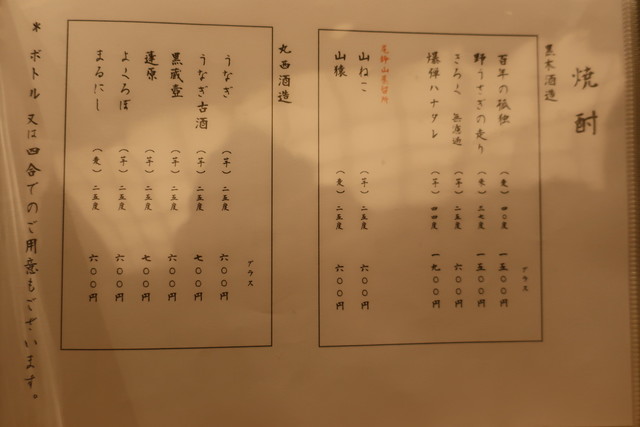 焼酎
黒木酒造
グラス
百年の孤独 （麦） 四〇度 一五〇〇円
野うさぎの走り （米） 三七度 一五〇〇円
きろく 無濾過 （芋） 二五度 六〇〇円
爆弾ハナタレ （芋） 四四度 一九〇〇円
尾鈴山蒸留所
山ねこ （芋） 二五度 六〇〇円
山猿 （麦） 二五度 六〇〇円
丸西酒造
グラス
うなぎ （芋） 二五度 六〇〇円
うなぎ古酒 （芋） 二五度 七〇〇円
黒蔵壺 （芋） 二五度 六〇〇円
蓬原 （芋） 二五度 七〇〇円
よくろぼ （芋） 二五度 六〇〇円
まるにし （麦） 二五度 六〇〇円
＊ボトル又は四合でのご用意もございます。